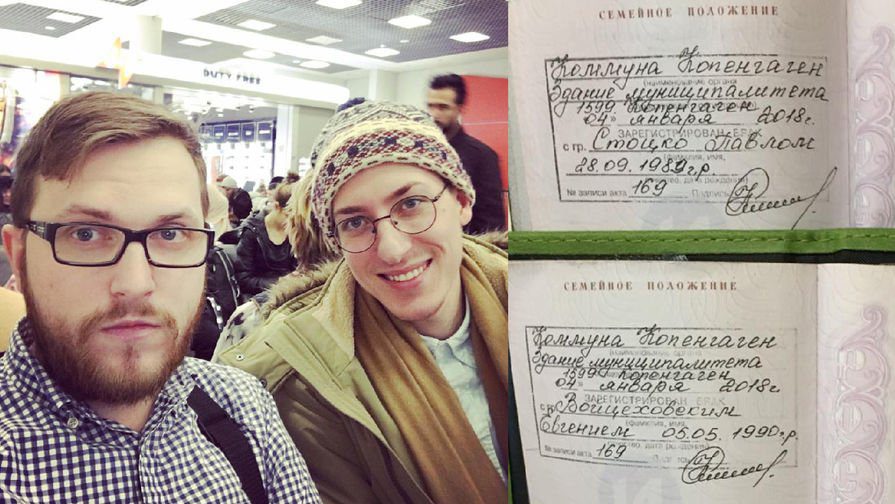 DUTY FREE
СЕМЕЙНОЕ ПОЛОЖЕНИЕ
Коммуна Копенгаген
(наименование органа
Здание муниципалитета
1599 Копенгаген
04» января 2018г.
ЗАРЕГИСТРИРОВАН БРАК
с гр. Стоцко Павлом
(фамилия, имя,
28.09. 1989г.р.
отчество, дата рождения)
№ записи акта 169 Подпись
СЕМЕЙНОЕ ПОЛОЖЕНИЕ
Коммуна Копенгаген
(наименование органа
Здание муниципалитета
1599 Копенгаген
04» января 2018г.
ЗАРЕГИСТРИРОВАН БРАК
с гр. Войцеховским
(фамилия, имя,
Евгением 05.05. 1990г.р.
отчество, дата рождения)
№ записи акта 169